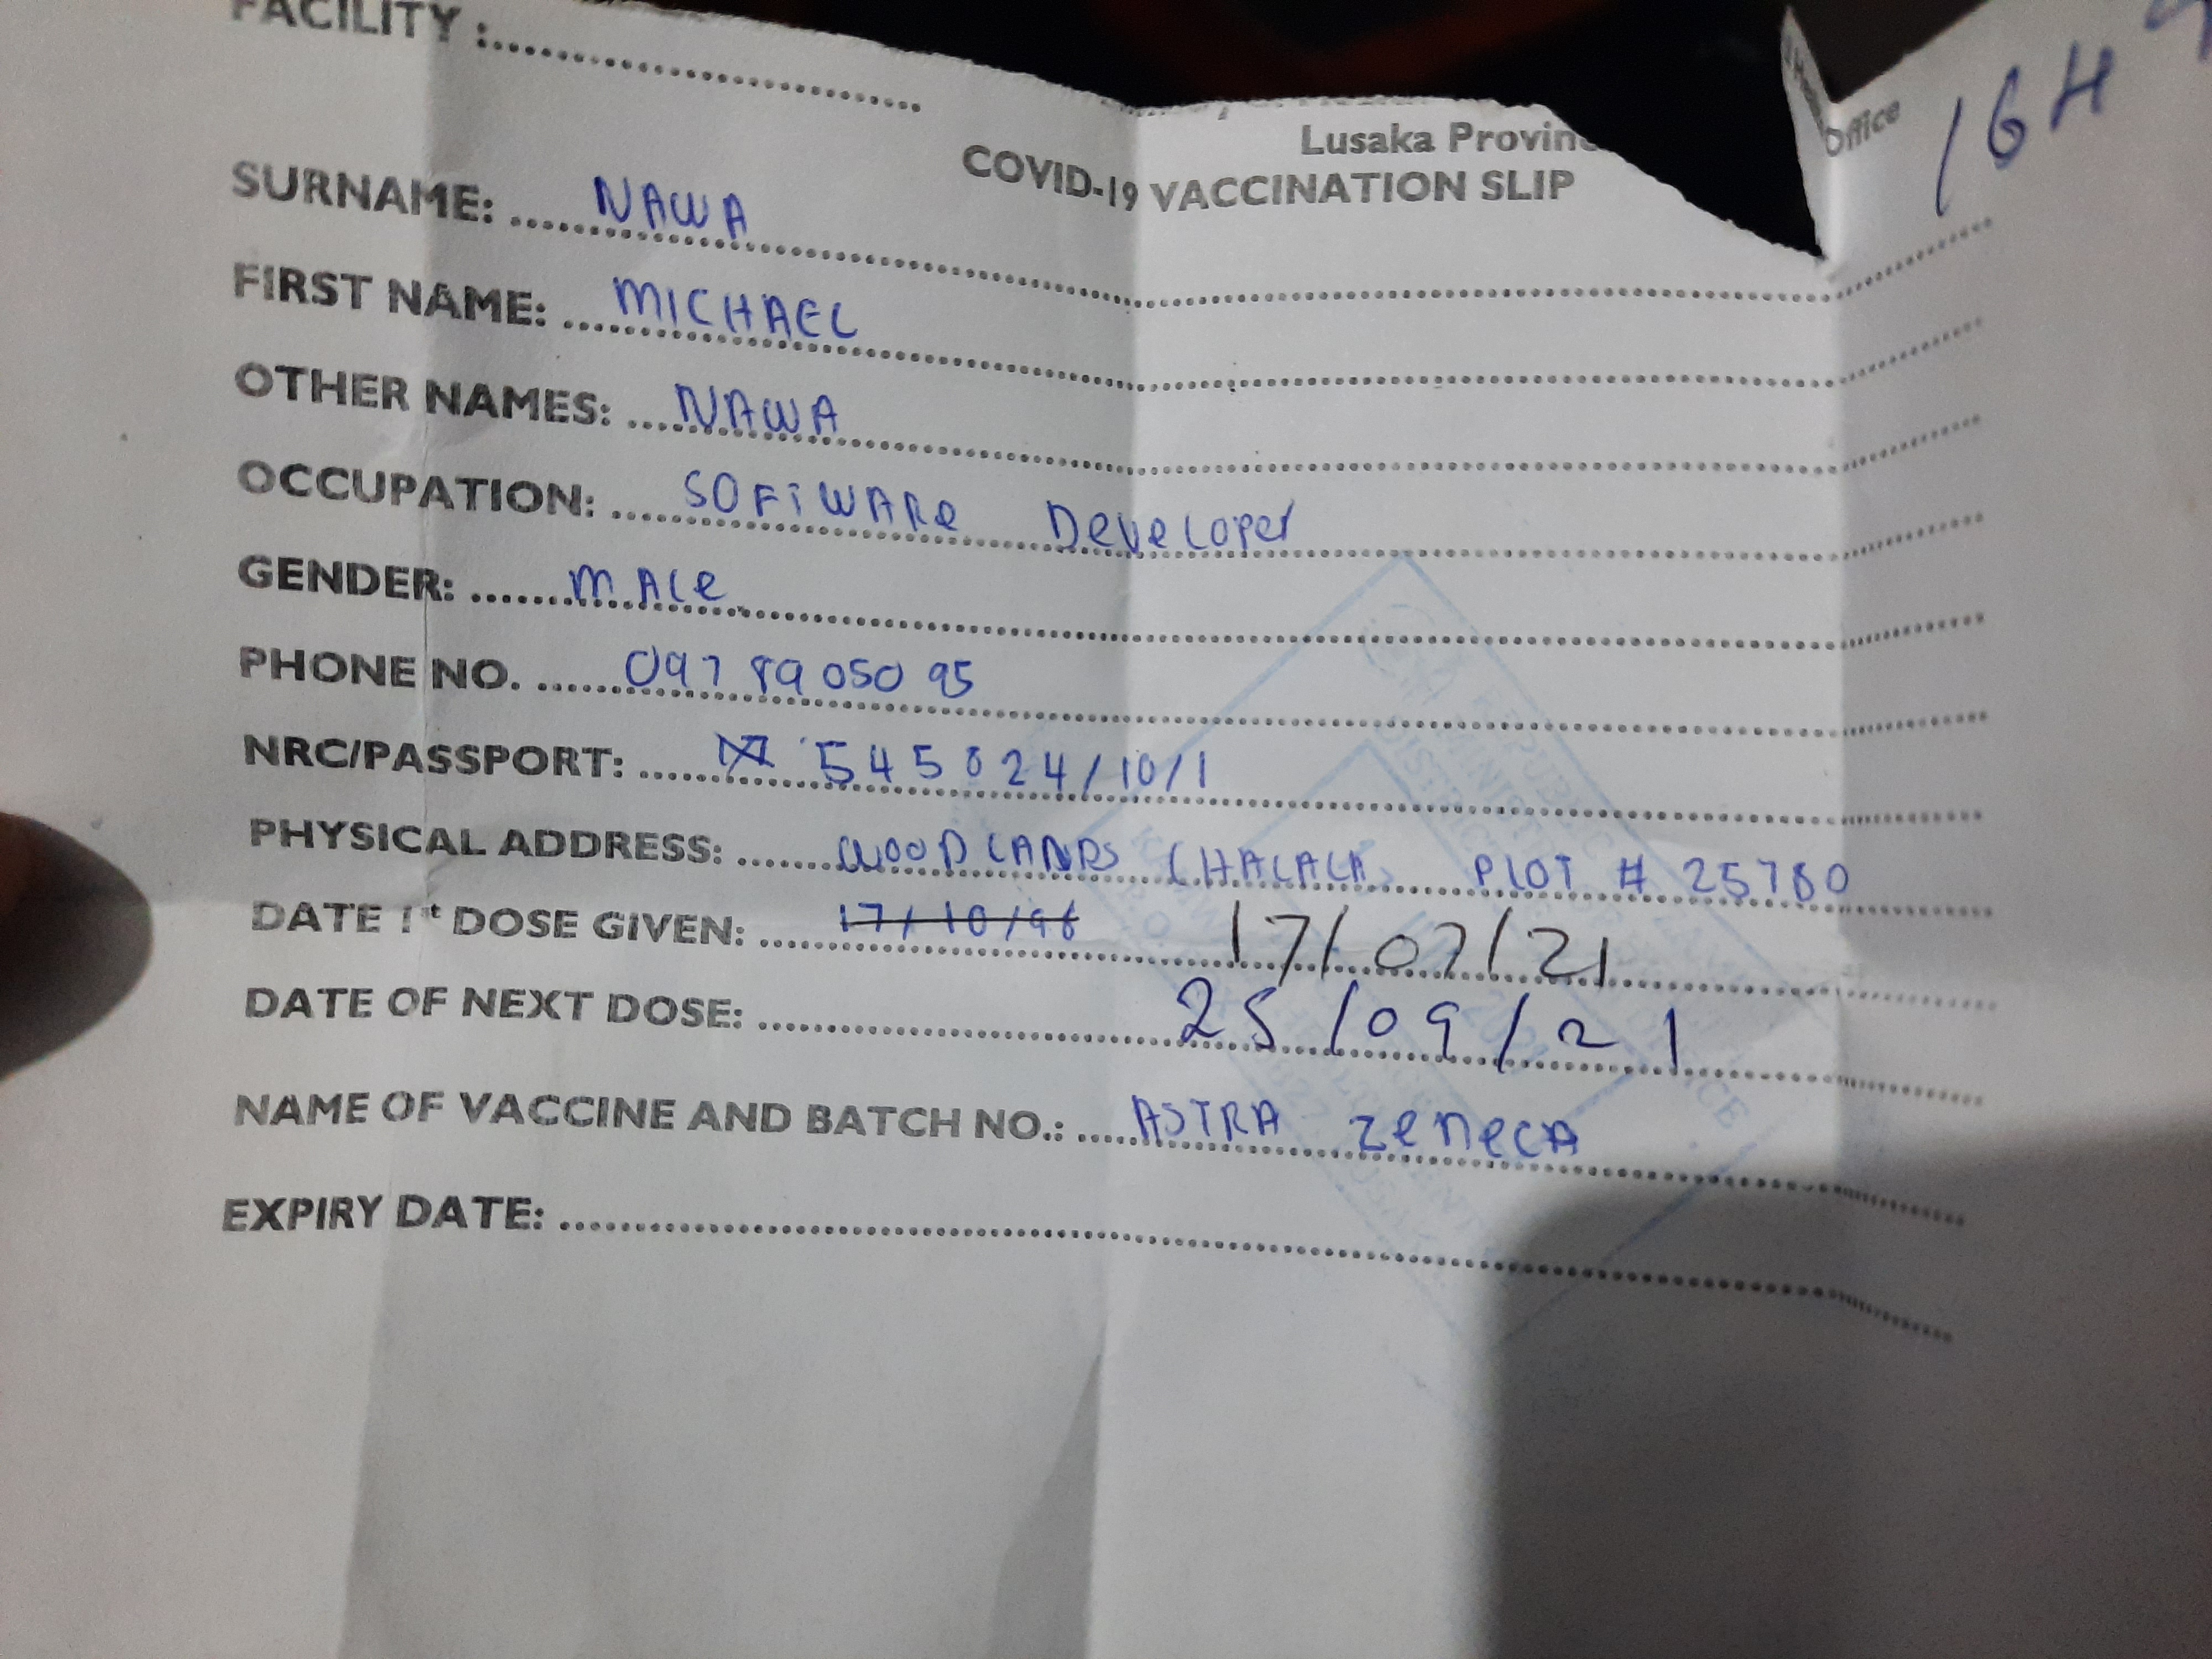 FACILITY :
Lusaka Office
COVID-19 VACCINATION SLIP
16H
SURNAME: NAWA
FIRST NAME: MICHAEL
OTHER NAMES: NAWA
OCCUPATION: SOFTWARe DeveLoper
GENDER: MALe
PHONE NO. 0978905095
NRC/PASSPORT: 545824/10/1
PHYSICAL ADDRESS: WOODLANDS CHALALA PLOT # 25780
DATE 1st DOSE GIVEN: 17/10/96 17/07/21
DATE OF NEXT DOSE: 25/09/21
NAME OF VACCINE AND BATCH NO.: ASTRA ZeneCA
EXPIRY DATE: